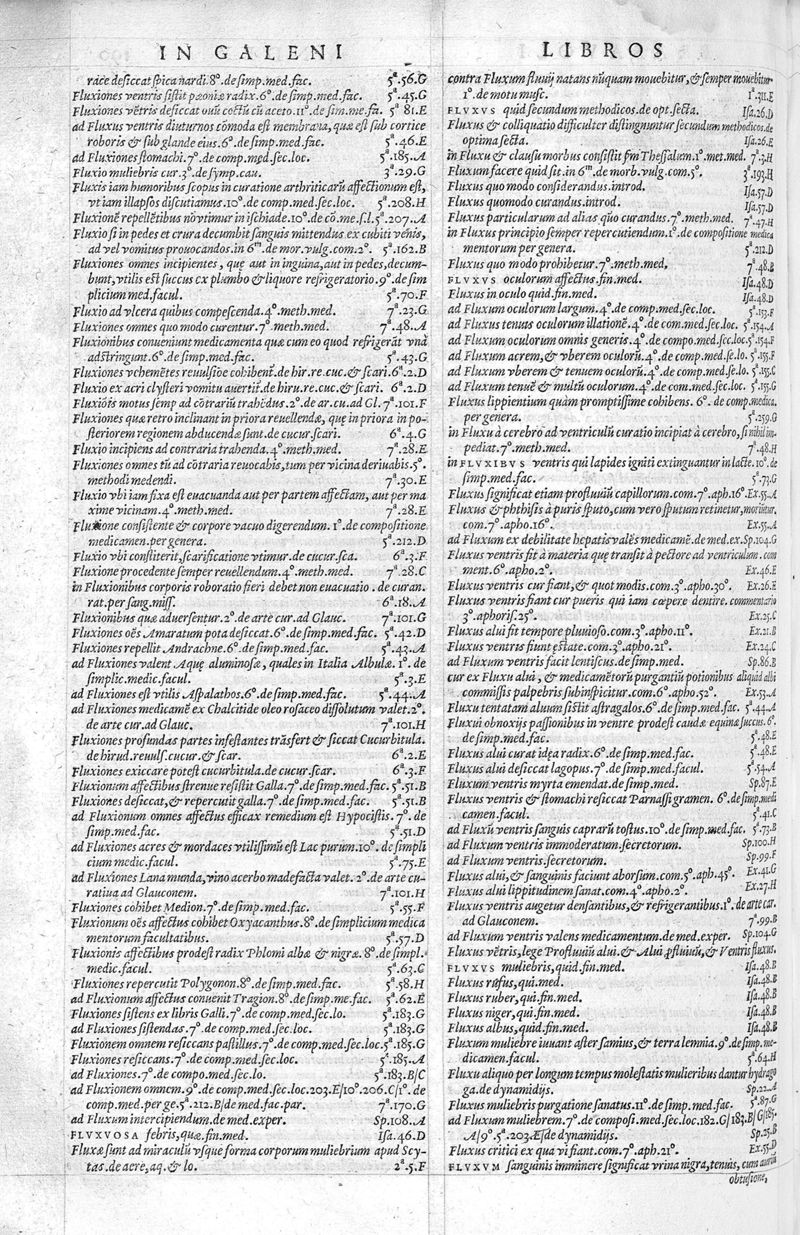 IN GALENI
race desiccat spica nardi.8°.de simp.med.fac. 5ª.56.G
Fluxiones ventris sistit pæoniæ radix.6°.de simp.med.fac. 5ª.45.G
Fluxiones vẽtris desiccat ouũ coctũ cũ aceto.11°.de sim.me.fa. 5ª 81.E
ad Fluxus ventris diuturnos cõmoda est membrana, quæ est sub cortice
roboris & sub glande eius.6°.de simp.med.fac. 5ª.46.E
ad Fluxiones stomachi.7°.de comp.med.sec.loc. 5ª.185.A
Fluxio muliebris cur.3°.de symp.cau. 3ª.29.G
Fluxis iam humoribus scopus in curatione arthriticarũ affectionum est,
vt iam illapsos discutiamus.10°.de comp.med.sec.loc. 5ª.208.H
Fluxionẽ repellẽtibus nõ vtimur in ischiade.10°.de cõ.me.s.l.5ª.207.A
Fluxio si in pedes et crura decumbit sanguis mittendus ex cubiti venis,
ad vel vomitus prouocandos.in 6ᵐ.de mor.vulg.com.2°. 5ª.162.B
Fluxiones omnes incipientes, quę aut in inguina,aut in pedes,decum-
bunt,vtilis est succus ex plumbo & liquore refrigeratorio.9°.de sim
plicium med.facul. 5ª.70.F
Fluxio ad vlcera quibus compescenda.4°.meth.med. 7ª.23.G
Fluxiones omnes quo modo curentur.7°.meth.med. 7ª.48.A
Fluxionibus conueniunt medicamenta quæ cum eo quod refrigerãt vnà
adstringunt.6°.de simp.med.fac. 5ª.43.G
Fluxiones vehemẽtes reuulsiõe cohibent.de hir.re cuc.& scari. 6ª.2.D
Fluxio ex acri clysteri vomitu auertit.de hiru.re.cuc.& scari. 6ª.2.D
Fluxiõis motus semp ad cõtrariũ trahẽdus.2°.de ar.cu.ad Gl.7ª.101.F
Fluxiones quæ retro inclinant in priora reuellendæ, quę in priora in po-
steriorem regionem abducendæ sunt.de cucur.scari. 6ª.4.G
Fluxio incipiens ad contraria trahenda.4°.meth.med. 7ª.28.E
Fluxiones omnes tũ ad cõtraria reuocabis,tum per vicina deriuabis.5°.
methodi medendi. 7ª.30.E
Fluxio vbi iam fixa est euacuanda aut per partem affectam, aut per ma
xime vicinam.4°.meth.med. 7ª.28.E
Fluxione consistente & corpore vacuo digerendum.1°.de compositione
medicamen.per genera. 5ª.212.D
Fluxio vbi constiterit,scarificatione vtimur.de cucur.sca. 6ª.3.F
Fluxione procedente semper reuellendum.4°.meth.med. 7ª.28.C
in Fluxionibus corporis roboratio fieri debet non euacuatio.de curan.
rat.per sang.miss. 6ª.18.A
Fluxionibus quæ aduersentur.2°.de arte cur.ad Glauc. 7ª.101.G
Fluxiones oẽs Amaratum pota desiccat.6°.de simp.med.fac. 5ª.42.D
Fluxiones repellit Andrachne.6°.de simp.med.fac. 5ª.43.A
ad Fluxiones valent Aquę aluminosæ, quales in Italia Albulæ.1°.de
simplic.medic.facul. 5ª.3.E
ad Fluxiones est vtilis Aspalathos.6°.de simp.med.fac. 5ª.44.A
ad Fluxiones medicamẽ ex Chalcitide oleo rosaceo dissolutum valet.2°.
de arte cur.ad Glauc. 7ª.101.H
Fluxiones profundas partes infestantes trãsfert & siccat Cucurbitula.
de hirud.reuuls.cucur.& scar. 6ª.2.E
Fluxiones exiccare potest cucurbitula.de cucur.scar. 6ª.3.F
Fluxionum affectibus strenue resistit Galla.7°.de simp.med.fac. 5ª.51.B
Fluxiones desiccat,& repercutit galla.7°.de simp.med.fac. 5ª.51.B
ad Fluxionum omnes affectus efficax remedium est Hypocistis.7°.de
simp.med.fac. 5ª.51.D
ad Fluxiones acres & mordaces vtilissimũ est Lac purum.10°.de simpli
cium medic.facul. 5ª.75.E
ad Fluxiones Lana munda,vino acerbo madefacta valet.2°.de arte cu-
ratiua ad Glauconem. 7ª.101.H
Fluxiones cohibet Medion.7°.de simp.med.fac. 5ª.55.F
Fluxionum oẽs affectus cohibet Oxyacanthus.8°.de simplicium medica
mentorum facultatibus. 5ª.57.D
Fluxionis affectibus prodest radix Phlomi albæ & nigræ.8°.de simpl.
medic.facul. 5ª.63.C
Fluxiones repercutit Polygonon.8°.de simp.med.fac. 5ª.58.H
ad Fluxionum affectus conuenit Tragion.8°.de simp.me.fac. 5ª.62.E
Fluxiones sistens ex libris Galli.7°.de comp.med.sec.lo. 5ª.183.G
ad Fluxiones sistendas.7°.de comp.med.sec.loc. 5ª.183.G
Fluxionem omnem resiccans pastillus.7°.de comp.med.sec.loc.5ª.185.G
Fluxiones resiccans.7°.de comp.med.sec.loc. 5ª.185.A
ad Fluxiones.7°.de compo.med.sec.lo. 5ª.183.B/C
ad Fluxionem omnem.9°.de comp.med.sec.loc.203.E/10°.206.C/1°.de
comp.med.per ge.5ª.212.B/de med.fac.par. 7ª.170.G
ad Fluxum intercipiendum.de med.exper. Sp.108.A
FLVXVOSA febris,quæ.fin.med. Isa.46.D
Fluxæ sunt ad miraculũ vsque forma corporum muliebrium apud Scy-
tas.de aere,aq.& lo. 2ª.5.F
LIBROS
contra Fluxum fluuij natans nũquam mouebitur,& semper mouebitur.
1°.de motu musc. 1ª.311.E
FLVXVS quid secundum methodicos.de opt.secta. Isa.26.D
Fluxus & colliquatio difficulter distinguntur secundum methodicos.de
optima secta. Isa.26.E
in Fluxu & clausu morbus consistit fm Thessalum.1°.met.med. 7ª.3.H
Fluxum facere quid sit.in 6ᵐ.de morb.vulg.com.5°. 3ª.193.H
Fluxus quo modo considerandus.introd. Isa.57.D
Fluxus quomodo curandus.introd. Isa.57.D
Fluxus particularum ad alias quo curandus.7°.meth.med. 7ª.47.H
in Fluxus principio semper repercutiendum.1°.de compositione medica
mentorum per genera. 5ª.212.D
Fluxus quo modo prohibetur.7°.meth.med, 7ª.48.B
FLVXVS oculorum affectus.fin.med. Isa.48.D
Fluxus in oculo quid.fin.med. Isa.48.D
ad Fluxus oculorum largum.4°.de comp.med.sec.loc. 5ª.153.F
ad Fluxus tenuis oculorum illationẽ.4°.de com.med.sec.loc. 5ª.154.A
ad Fluxum oculorum omnis generis.4°.de compo.med.sec.loc.5ª.154.F
ad Fluxum acrem,& vberem oculorũ.4°.de comp.med.se.lo. 5ª.155.F
ad Fluxum vberem & tenuem oculorũ.4°.de comp.med.se.lo. 5ª.155.C
ad Fluxum tenuẽ & multũ oculorum.4°.de com.med.sec.loc. 5ª.155.G
Fluxus lippientium quàm promptissime cohibens. 6°. de comp.medica.
per genera. 5ª.259.G
in Fluxu à cerebro ad ventriculũ curatio incipiat à cerebro,si nihil im-
pediat.7°.meth.med. 7ª.48.H
in FLVXIBVS ventris qui lapides igniti extinguantur in lacte.10°.de
simp.med.fac. 5ª.73.G
Fluxus significat etiam profluuiũ capillorum.com.7°.aph.16°.Ex.55.A
Fluxus & phthisis à puris sputo,cum vero sputum retinetur,moriuntur.
com.7°.apho.16°. Ex.55.A
ad Fluxum ex debilitate hepatis valẽs medicamẽ.de med.ex.Sp.104.G
Fluxus ventris fit à materia que transit à pectore ad ventriculum.com
ment.6°.apho.2°. Ex.46.E
Fluxus ventris cur fiant,& quot modis.com.3°.apho.30°. Ex.26.E
Fluxus ventris fiant cur pueris qui iam cœpere dentire. commentario
3°.aphoris.25°. Ex.25.C
Fluxus alui fit tempore pluuioso.com.3°.apho.11°. Ex.21.B
Fluxus ventris fiunt ęstate.com.3°.apho.21°. Ex.24.C
ad Fluxum ventris facit lentiscus.de simp.med. Sp.86.B
cur ex Fluxu alui, & medicamẽtorũ purgantiũ potionibus aliquid albi
commissis palpebris subinspicitur.com.6°.apho.52°. Ex.53.A
Fluxu tentatam aluum sistit astragalos.6°.de simp.med.fac. 5ª.44.A
Fluxui obnoxijs passionibus in ventre prodest caudæ equinæ succus.6°.
de simp.med.fac. 5ª.48.E
Fluxus alui curat idęa radix.6°.de simp.med.fac. 5ª.48.E
Fluxus alui desiccat lagopus.7°.de simp.med.facul. 5ª.54.A
Fluxum ventris myrta emendat.de simp.med. Sp.87.E
Fluxus ventris & stomachi resiccat Parnassi gramen. 6°.de simp.medi
camen.facul. 5ª.41.C
ad Fluxũ ventris sanguis caprarũ tostus.10°.de simp.med.fac. 5ª.73.B
ad Fluxum ventris immoderatum.secretorum. Sp.100.H
ad Fluxum ventris.secretorum. Sp.99.F
Fluxus alui,& sanguinis faciunt aborsum.com.5°.aph.45°. Ex.41.G
Fluxus alui lippitudinem sanat.com.4°.apho.2°. Ex.27.H
Fluxus ventris augetur densantibus,& refrigerantibus.1°.de arte car.
ad Glauconem. 7ª.99.B
ad Fluxum ventris valens medicamentum.de med.exper. Sp.104.G
Fluxus vẽtris,lege Profluuiũ alui.& Alui ꝓfluuiũ,& Ventris fluxus.
FLVXVS muliebris,quid.fin.med. Isa.48.B
Fluxus rufus,qui.med. Isa.48.B
Fluxus ruber,qui.fin.med. Isa.48.B
Fluxus niger,qui.fin.med. Isa.48.B
Fluxus albus,quid.fin.med. Isa.48.B
Fluxum muliebre iuuant aster samius,& terra lemnia.9°.de simp.me-
dicamen.facul. 5ª.64.H
Fluxu aliquo per longum tempus molestatis mulieribus dantur hydrago
ga.de dynamidijs. Sp.22.A
Fluxus muliebris purgatione sanatus.11°.de simp.med.fac. 5ª.87.G
ad Fluxum muliebrem.7°.de composi.med.sec.loc.182.G/183.B/G/185.
A/9°.5ª.203.Æ/de dynamidijs. Sp.25.B
Fluxus critici ex qua vi fiant.com.7°.aph.21°. Ex.55.D
FLVXVM sanguinis imminere significat vrina nigra,tenuis, cum auriū
obtusione,